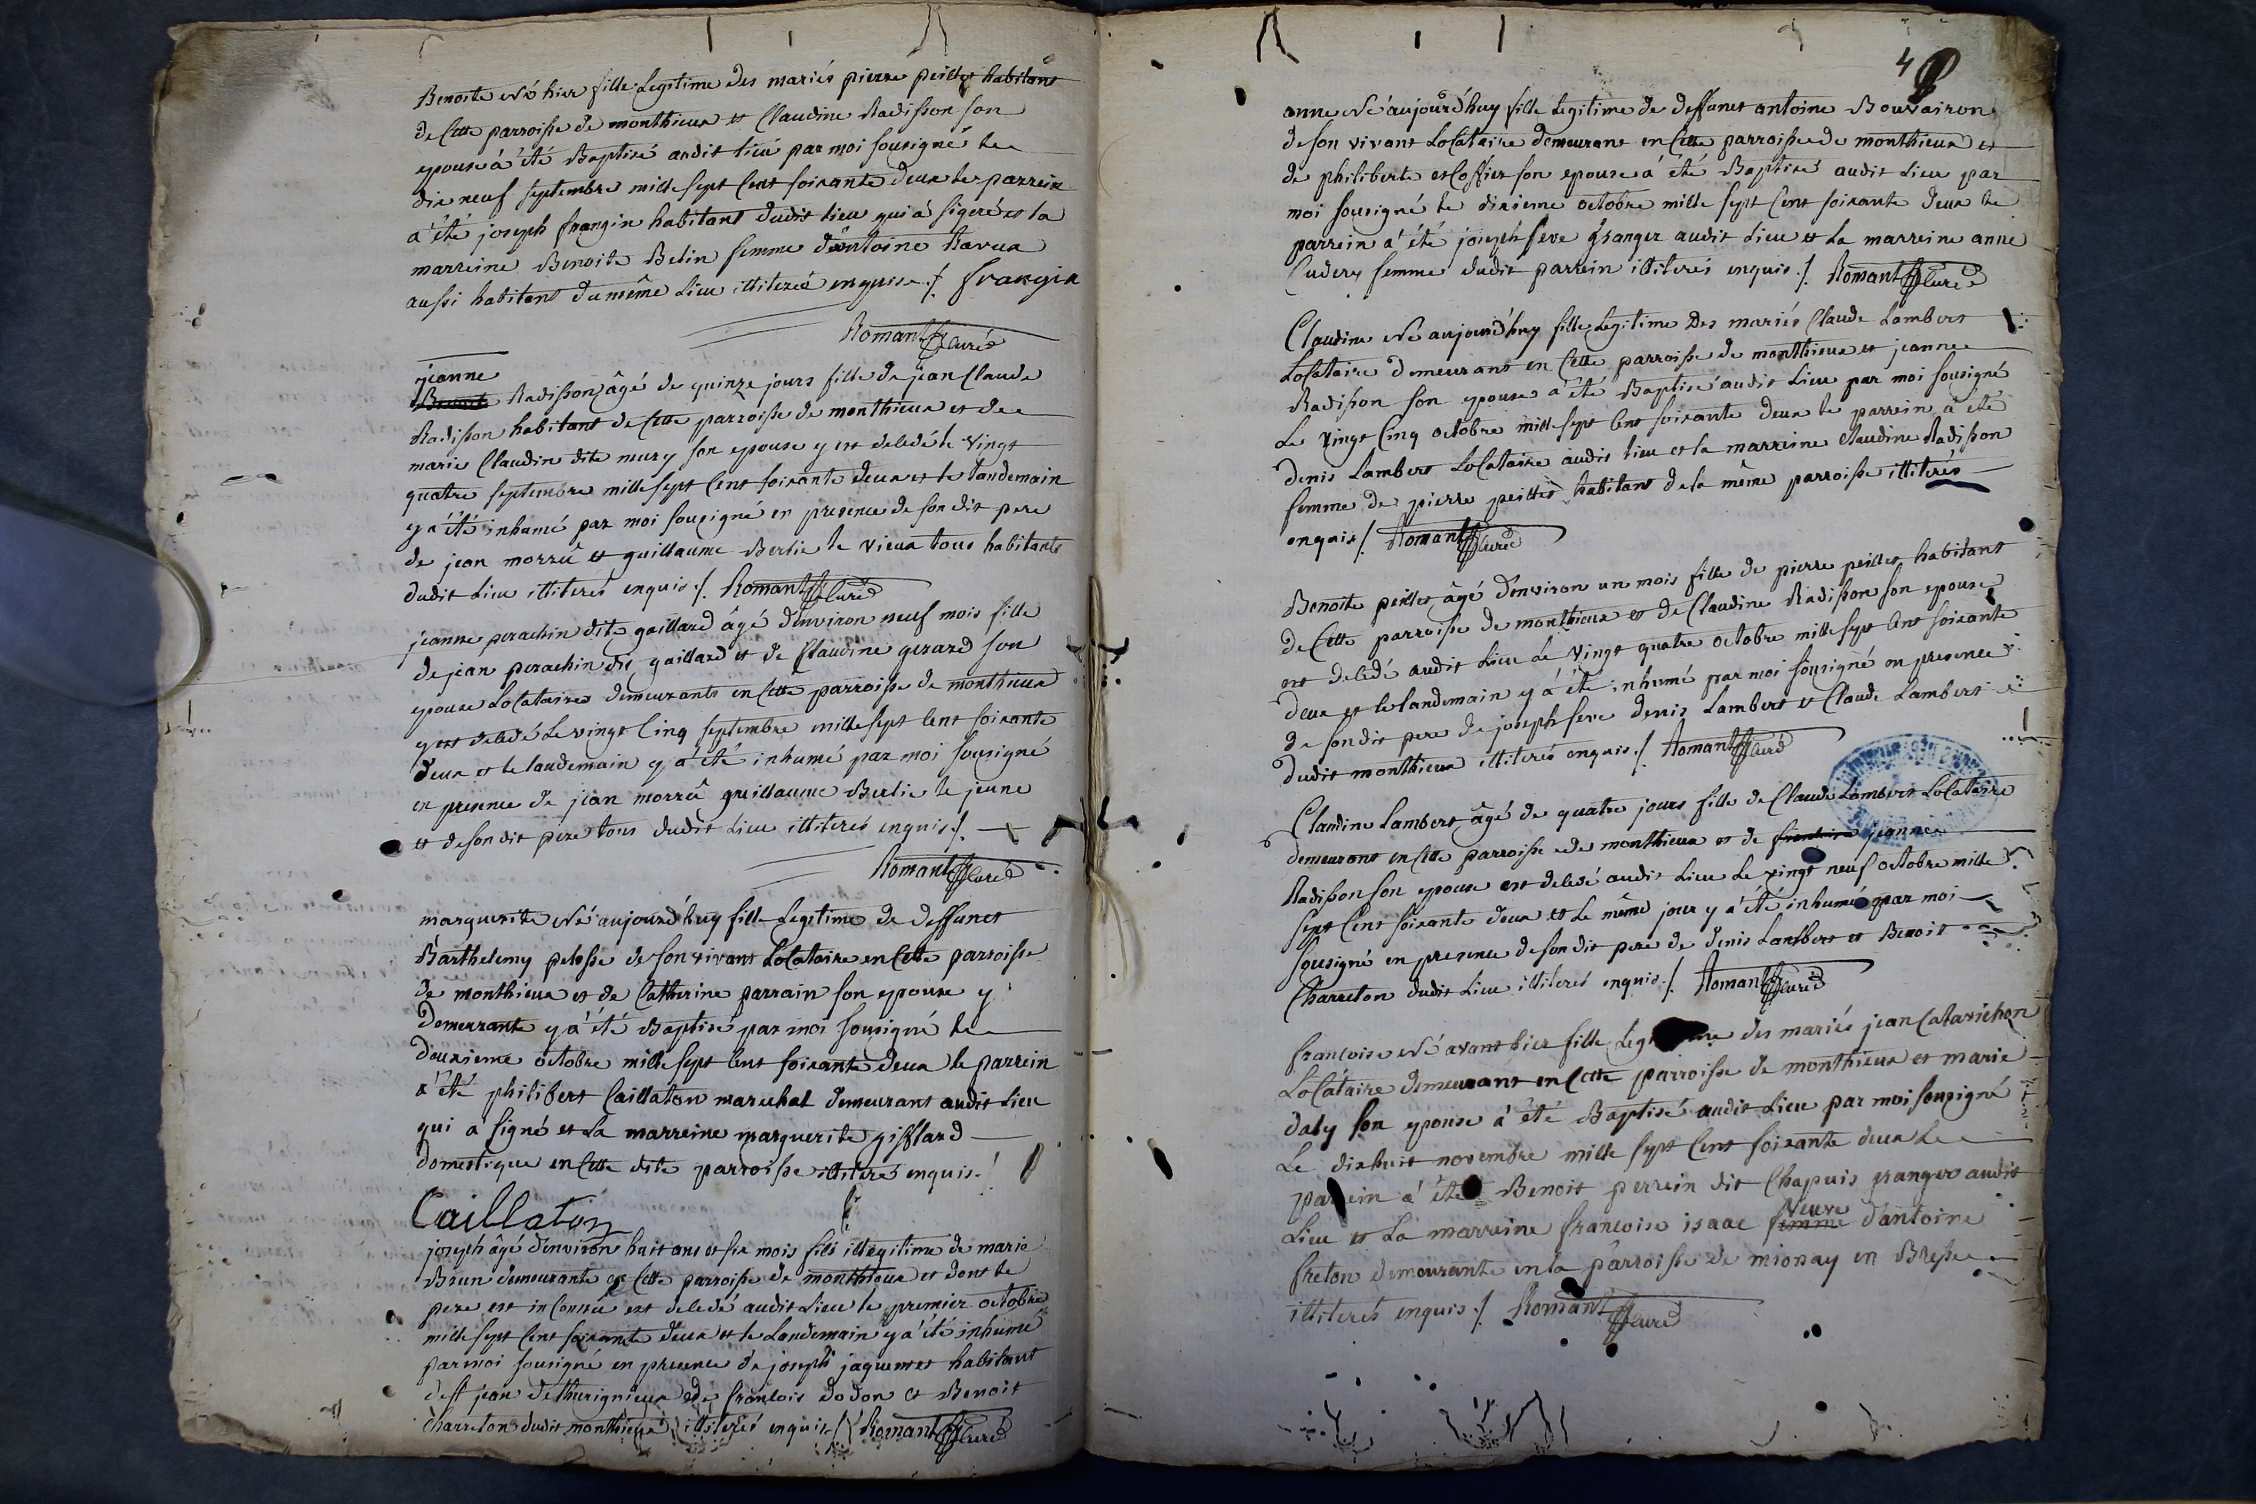 Benoite Né hier fille Legitime des mariés pierre peillet habitant
de Cette parroisse de monthieux et Claudine Radisson son
epouse à été Baptisé audit lieu par moi sousigné le
dix neuf septembre mille sept Cent soixante deux le parrein
a été joseph frangin habitant dudit lieu qui à signé et la
marreine Benoite Belin femme d'antoine Ravux
aussi habitant du même Lieu illiteré enquise ./. frangin
Romant Curé
jeanne
Benoite Radisson âgé de quinze jours fille de jean Claude
Radisson habitant de Cette parroisse de monthieux et de
marie Claudin dite mury son epouse y est decedé le vingt
quatre septembre mille sept Cent soixante deux et le landemain
y a été inhumé par moi sousigné en presence de son dit pere
de jean morrû et guillaume Berlie le vieux tous habitants
dudit Lieu illiterés enquis ./. Romant Curé
jeanne perachin dite gaillard âgé d'environ neuf mois fille
de jean perachin dit gaillard et de Claudine gerard son
epouse Locataires demeurants en Cette parroisse de monthieux
y est decedé Le vingt Cinq septembre mille sept Cent soixante
deux et le landemain y a été inhumé par moi sousigné
en presence de jean morrû guillaume Berlie le jeune
et de son dit pere tous dudit Lieu illiterés enquis ./.
Romant Curé
marguerite Né aujourd'huy fille Legitime de deffunct
Barthelemy pelosse de son vivant Locataire en Cette parroisse
de monthieux et de Catherine parrain son epouse y
demeurante y a été Baptisé par moi sousigné le
douxieme octobre mille sept Cent soixante deux le parrein
à été philibert Caillaton marechal demeurant audit Lieu
qui a signé et La marreine marguerite gifflard
domestique en Cette dite parroisse illiteré enquis ./.
Caillaton
joseph âgé d'environ huit ans et six mois fils illegitime de marie
Brun demeurante en Cette parroisse de monthieux et dont le
pere est inconnu est decedé audit Lieu le premier octobre
mille sept Cent soixante deux et le Landemain y a été inhumé
par moi sousigné en presence de joseph jaquemet habitant
de st jean dethurignieux de francois dodon et Benoit
Charreton dudit monthieux illiterés enquis ./. Romant Curé
4
anne Né aujourd'huy fille Legitime de deffunct antoine Bouvairon
de son vivant Locataire demeurant en Cette parroisse de monthieux et
de philiberte escoffier son epouse à été Baptisé audit Lieu par
moi sousigné le dixieme octobre mille sept Cent soixante deux le
parrein a été joseph seve granger audit Lieu et La marreine anne
Cudery femme dudit parrein illiterés enquis ./. Romant Curé
Claudine Né aujourd'huy fille Legitime des mariés Claude Lambert
Locataire demeurant en Cette parroisse de monthieux et jeanne
Radisson son epouse a été Baptisé audit Lieu par moi sousigné
Le vingt Cinq octobre mille sept Cent soixante deux le parrein à été
denis Lambert Locataire audit lieu et la marreine Claudine Radisson
femme de pierre peillet habitant de la même parroisse illiterés
enquis ./. Romant Curé
Benoite peillet âgé d'environ un mois fille de pierre peillet habitant
de Cette parroisse de monthieux et de Claudine Radisson son epouse
est decedé audit Lieu Le vingt quatre octobre mille sept Cent soixante
deux et le landemain y à été inhumé par moi sousigné en presence
de son dit pere de joseph seve denis Lambert et Claude Lambert
dudit monthieux illiterés enquis ./. Romant Curé
Claudine Lambert âgé de quatre jours fille de Claude Lambert Locataire
demeurant en Cette parroisse de monthieux et de jeanne
Radisson son epouse est decedé audit Lieu Le vingt neuf octobre mille
sept Cent soixante deux et Le même jour y à été inhumé par moi
sousigné en presence de son dit pere de denis Lambert et Benoit
Charreton dudit Lieu illiterés enquis ./. Romant Curé
francoise Né avant hier fille Legitime des mariés jean Catarichon
Locataire demeurant en Cette parroisse de monthieux et marie
daly son epouse à été Baptisé audit Lieu par moi sousigné
Le dixhuit novembre mille sept Cent soixante deux Le
parrein à été Benoit perrein dit Chapuis granger audit
Lieu et La marreine francoise isaac femme veuve d'antoine
freton demeurante en la parroisse de mionay en Bresse
illiterés enquis ./. Romant Curé